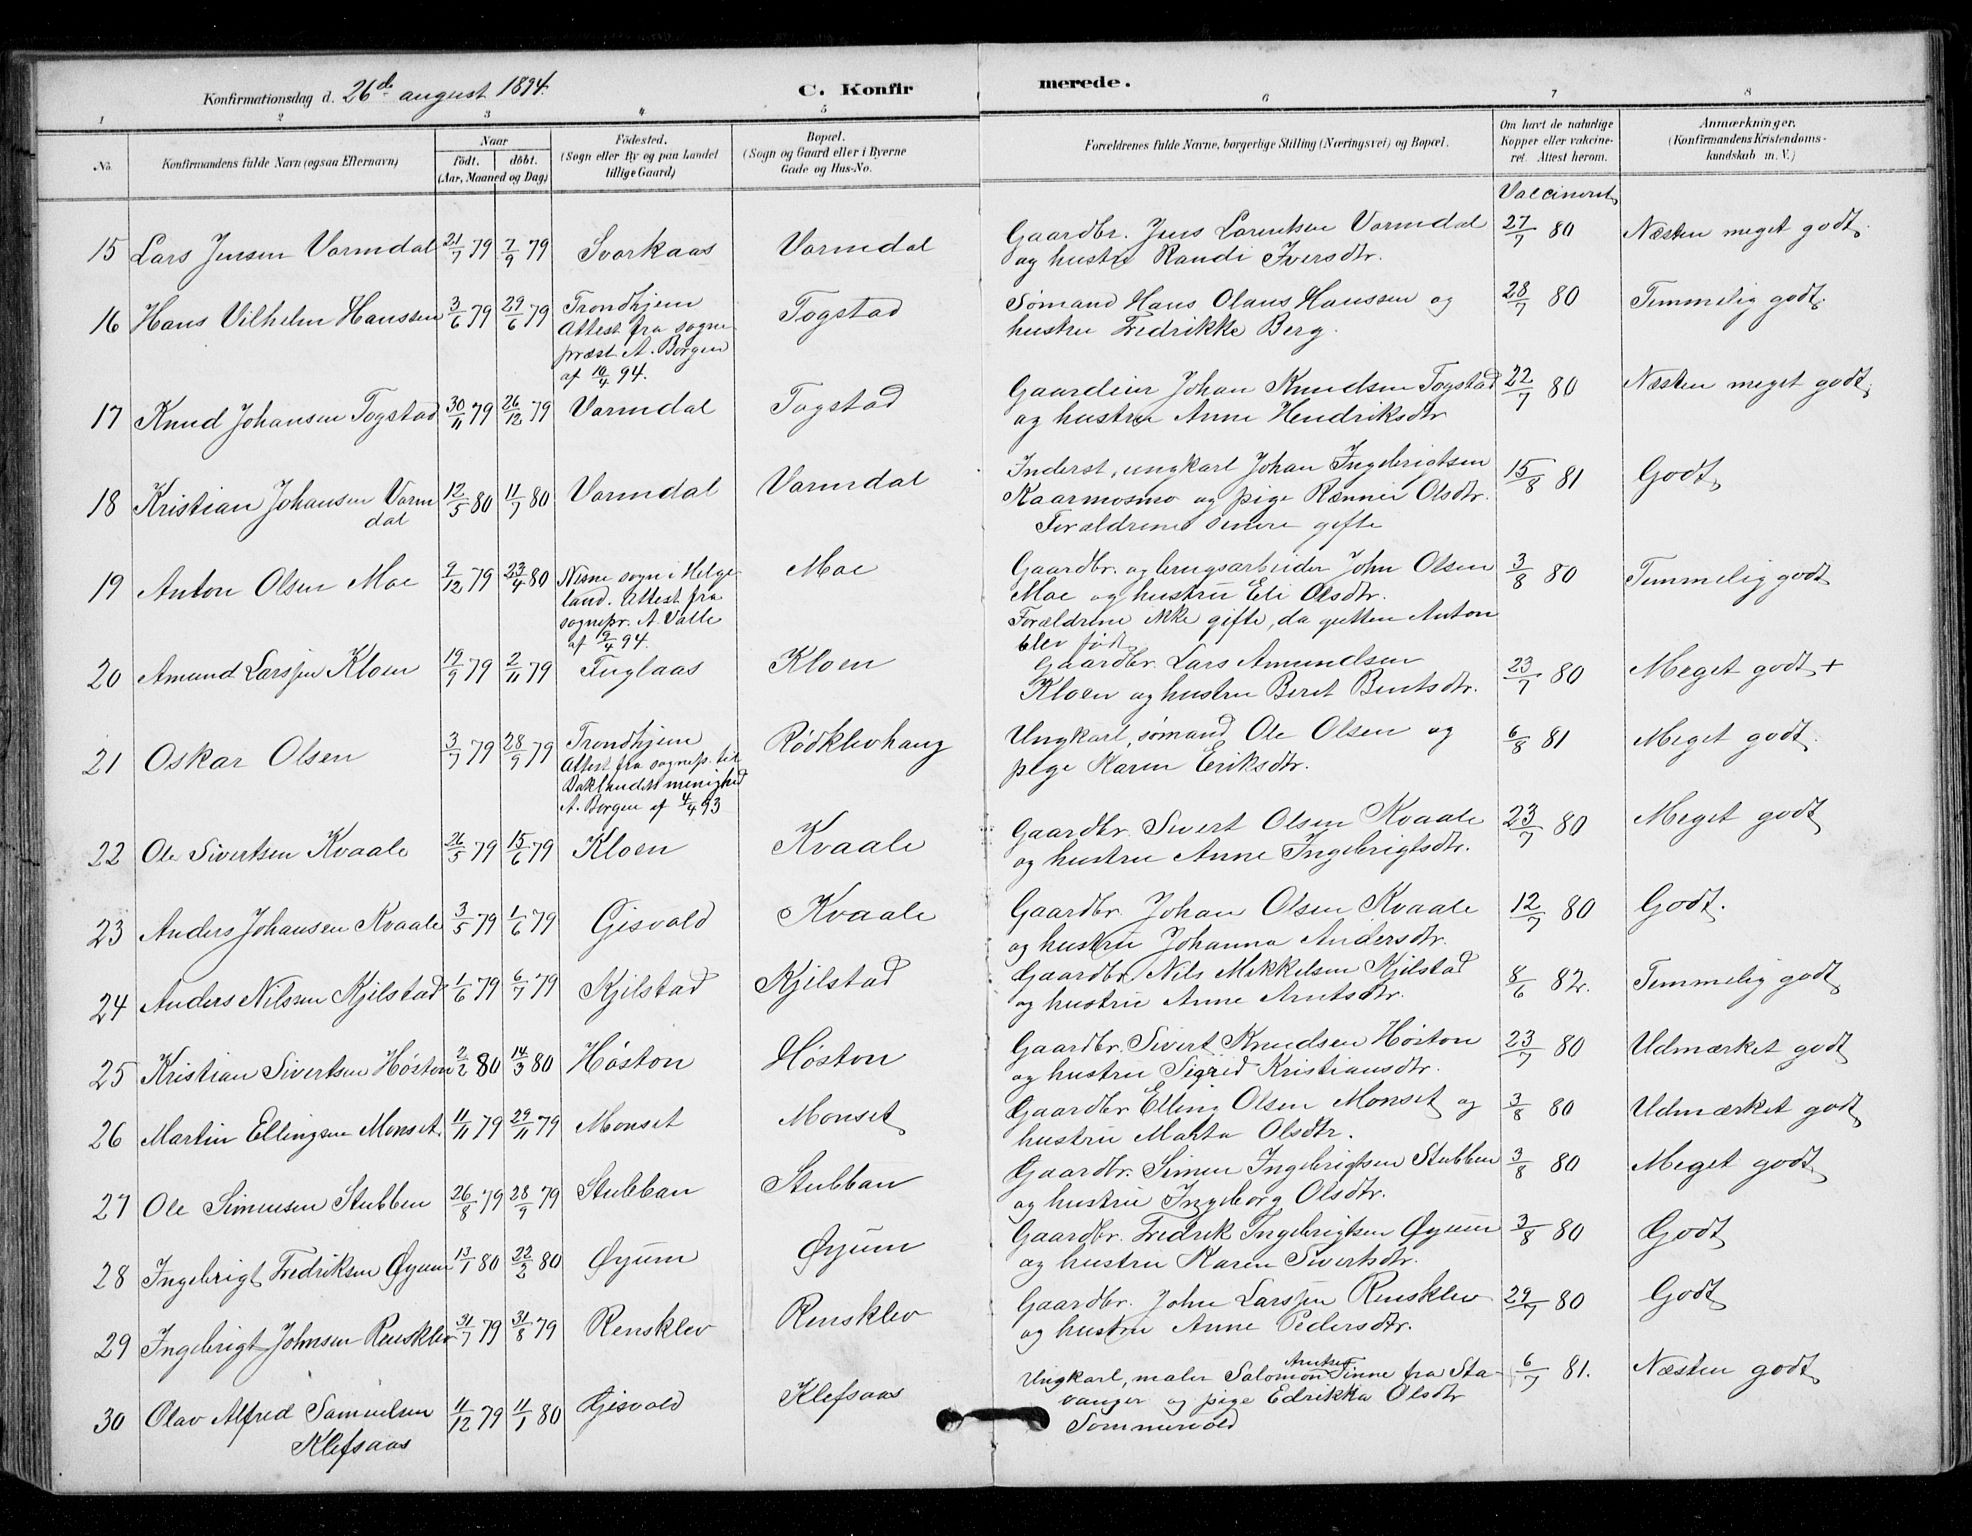 Konfirmationsdag d. 26de august 1894.
C. Konfirmerede.
1 2 3 4 5 6 7 8
No.
Konfirmandens fulde Navn (ogsaa Efternavn)
Naar
födt. döbt.
(Aar, Maaned og Dag)
Födested.
(Sogn eller By og paa Landet
tillige Gaard)
Bopæl.
(Sogn og Gaard eller i Byerne
Gade og Hus-No.
Forældrenes fulde Navne, borgerlige Stilling (Næringsvei) og Bopæl.
Om havt de naturlige
Kopper eller vakcine-
ret. Attest herom.
Anmærkninger.
(Konfirmandens Kristendoms-
kundskab m. V.)
Vaccineret
15 Lars Jensen Vormdal 21/7 79 7/9 79 Svorkaas Vormdal Gaardbr. Jens Lorentsen Vormdal 27/7 80 Næsten meget godt.
og hustru Randi Iversdtr.
16 Hans Vilhelm Hanssen 3/6 79 29/6 79 Trondhjem Togstad Sømand Hans Olaus Hanssen og 28/7 80 Temmelig godt.
Attest fra sogne hustru Fredrikke Berg.
præst A. Borgen
af 10/4 94.
17 Knud Johansen Togstad 30/11 79 26/12 79 Vormdal Togstad Gaardeier Johan Knudsen Togstad 22/7 80 Næsten meget godt.
og hustru Anne Hendriksdtr
18 Kristian Johansen Vorm 12/5 80 11/7 80 Vormdal Vormdal Inderst, ungkarl Johan Ingebrigtsen 15/8 81 Godt
dal Kaarmosmo og pige Rønnei Olsdtr.
Forældrene senere gifte
19 Anton Olsen Moe 9/12 79 23/4 80 Nesne sogn i Helge Moe Gaardbr. og brugsarbeider John Olsen 3/8 80 Temmelig godt
land. Attest fra Moe og hustru Eli Olsdtr.
sognepr. A. Valle Forældrene ikke gifte, da gutten Anton
af 9/4 94. blev født
20 Amund Larssen Kloen 19/9 79 2/11 79 Fuglaas Kloen Gaardbr. Lars Amundsen 23/7 80 Meget godt +
Kloen og hustru Beret Bentsdtr.
21 Oskar Olsen 3/7 79 28/9 79 Trondhjem Rødklevhaug Ungkarl, sømand Ole Olsen og 6/8 81 Meget godt
Attest fra sognep. til pige Karen Eriksdtr.
Baklandets menighed
A. Borgen af 4/4 93
22 Ole Sivertsen Kvaale 26/5 79 15/6 79 Kloen Kvaale Gaardbr. Sivert Olsen Kvaale 23/7 80 Meget godt
og hustru Anne Ingebrigtsdtr.
23 Anders Johansen Kvaale 3/5 79 1/6 79 Gisvold Kvaale Gaardbr. Johan Olsen Kvaale 12/7 80 Godt.
og hustru Johanna Andersdtr.
24 Anders Nilssen Kjelstad 1/6 79 6/7 79 Kjelstad Kjelstad Gaardbr. Nils Mikkelsen Kjelstad 8/6 82. Temmelig godt
og hustru Anne Arntsdtr.
25 Kristian Sivertsen Høston 2/2 80 14/3 80 Høston Høston Gaardbr. Sivert Knudsen Høston 23/7 80 Udmærket godt
og hustru Sigrid Kristiansdtr.
26 Martin Ellingsen Monset. 11/11 79 29/11 79 Monset Monset Gaardbr Elling Olsen Monset og 3/8 80 Udmærket godt
hustru Marta Olsdtr.
27 Ole Simensen Stubben 26/8 79 28/9 79 Stubban Stubban Gaardbr. Simen Ingebrigtsen Stubben 3/8 80 Meget godt
og hustru Ingeborg Olsdtr.
28 Ingebrigt Fredriksen Øyum 13/1 80 22/2 80 Øyum Øyum Gaardbr. Fredrik Ingebrigtsen Øyum 3/8 80 Godt
og hustru Karen Sivertsdtr.
29 Ingebrigt Johnsen Rensklev 31/7 79 31/8 79 Rensklev Rensklev Gaardbr. John Larssen Rensklev 29/7 80 Godt
og hustru Anne Pedersdtr.
30 Olav Alfred Samuelsen 11/12 79 11/1 80 Gisvold Klefsaas Ungkarl, maler Salomon Arntsen Sinne fra Sta- 6/7 81. Næsten godt
Klefsaas vanger og pige Edrikka Olsdtr
Sommervold